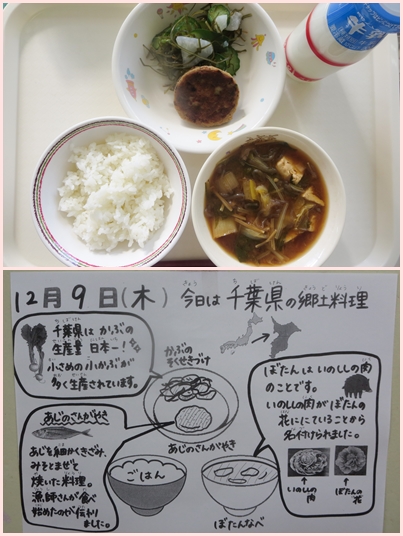 12月9日(木) 今日は千葉県の郷土料理
きょう ちばけん きょうどりょうり
千葉県はかぶの
生産量日本一!
小さめの小かぶが
多く生産されています。
かぶの
そくせきづけ
ぼたんはいのししの肉
のことです。
いのししの肉がぼたんの
花ににていることから
名付けられました。
いのししの
肉
ぼたんの
花
あじのさんがやき
あじを細かくきざみ、
みそとまぜて
焼いた料理。
漁師さんが食べ
始めたのが伝わり
ました。
あじのさんがやき
ごはん
ぼたんなべ